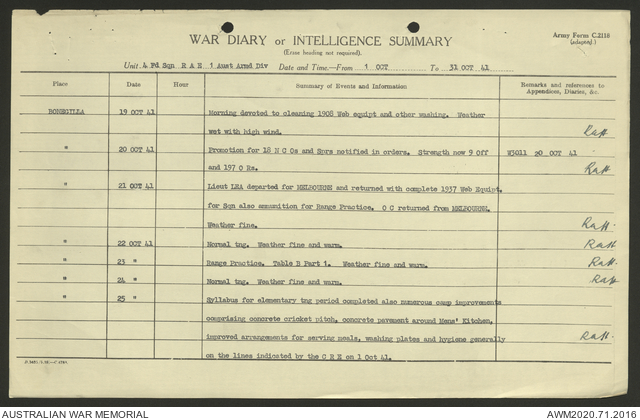 WAR DIARY or INTELLIGENCE SUMMARY
(Erase heading not required).
Army Form C.2118
(adapted.)
Unit 4 Fd Sqn R A E 1 Aust Armd Div Date and Time.—From 1 OCT To 31 OCT 41
Place Date Hour Summary of Events and Information Remarks and references to
Appendices, Diaries, &c.
BONEGILLA 19 OCT 41 Morning devoted to cleaning 1908 Web equipt and other washing. Weather
wet with high wind.
" 20 OCT 41 Promotion for 18 N C Os and Sprs notified in orders. Strength now 9 Off W3011 20 OCT 41
and 197 O Rs.
" 21 OCT 41 Lieut LEA departed for MELBOURNE and returned with complete 1937 Web Equipt.
for Sqn also ammunition for Range Practice. O C returned from MELBOURNE.
Weather fine.
" 22 OCT 41 Normal tng. Weather fine and warm.
" 23 " Range Practice. Table B Part 1. Weather fine and warm.
" 24 " Normal tng. Weather fine and warm.
" 25 " Syllabus for elementary tng period completed also numerous camp improvements
comprising concrete cricket pitch, concrete pavement around Mens' Kitchen,
improved arrangements for serving meals, washing plates and hygiene generally
on the lines indicated by the C R E on 1 Oct 41.
AUSTRALIAN WAR MEMORIAL AWM2020.71.2016